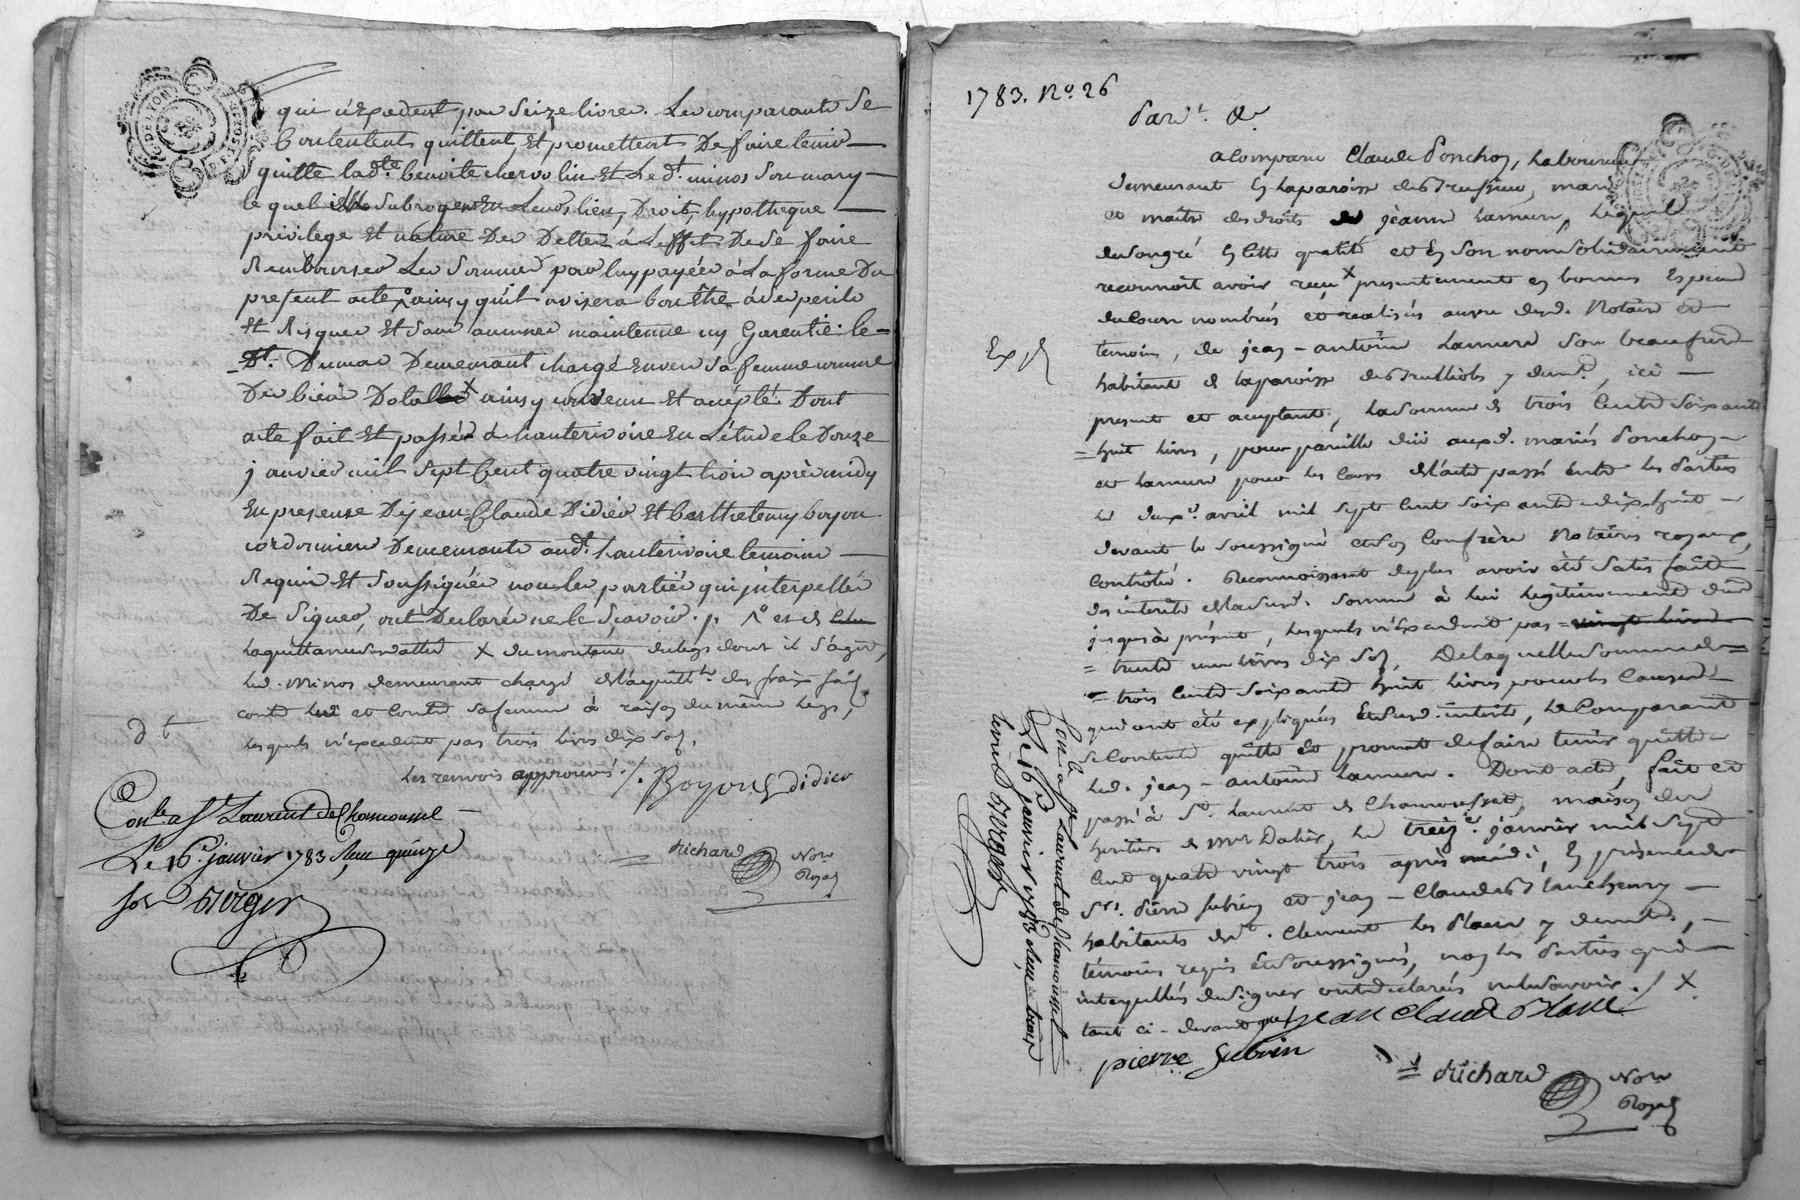 qui n'excedent pas seize livres. Les comparants se
Contentent quittent et promettent De faire tenir
quitte lad.te benoite chervolin et Le d.t minos son mary
le quel subrogent En Leurs lieu, Droit, hypotheque
privilege et nature De Dettes à L'effet De se faire
Rembourser Les Sommes par luy payées à La forme Du
present acte ainsy qu'il avisera bon être à ses perils
et Risques et sans aucune maintenue ny Garentie. le
D.t Dumas Demeurant chargé Envers sa femme comme
De bien Dotal X ainsy convenu et accepté. Dont
acte fait et passé à hauterivoire En L'étude le Douze
janvier mil sept Cent quatre vingt trois après midy
En presence De jean Claude Didier et barthelemy boyou
cordonnier Demeurants aud.t hauterivoire temoins
Requis et Soussignés non les parties qui interpellés
De Signer, ont Declaré ne le Sçavoir ./. et de
la quittance X du montant du legs dont il s'agit,
led. Minos demeurant chargé des frais faits
contre lui et Contre sa femme à raison du même legs,
lesquels n'excedent pas trois livres dix sols.
Les renvois approuvés ./. Boyou Didier
d t
Con.le a S.t Laurent de Chamousset
Le 16.e janvier 1783 Reçu quinze
sols Berger
Richard Not.re
Royal
1783. N.o 26
Pard.t &.
a Comparu Claude Ponchon, Laboureur
demeurant en la paroisse de Brussieu, mari
et maitre des droits de jeanne Lamure, lequel
de son gré en cette qualité et en son nom solidairement
reconnoit avoir reçu X presentement en bonnes Especes
de Cours nombrés et realisés au vu desd. Notaire et
temoins, de jean-antoine Lamure son beaufrere
Exp.é
habitant de la paroisse des Brulliols y dem.t, ici
present et acceptant, la somme de trois Cents soixante
huit livres, pour pareille due auxd. mariés Ponchon
et Lamure pour les Causes de l'acte passé entre les Parties
le deux.e avril mil sept Cent soixante dix huit
devant le soussigné et son Confrère Notaires royaux,
Contrôlé. Reconnoissant de plus avoir été satisfait
des interêts de lad. somme à lui légitimement dûs
jusques à présent, lesquels n'excedent pas vingt livres
trente une livres dix sols, De laquelle somme de
trois Cents soixante huit livres pour les Causes
qui ont été expliquées et susd. interêts, le Comparant
se Contente quitte et promet de faire tenir quitte
led. jean-antoine Lamure. Dont acte, fait et
passé à S.t Laurent de Chamousset, maison des
heritiers de M.r Dalier, le treiz.e janvier mil sept
Cent quatre vingt trois après midi, En présence de
S.rs pierre Subrin et jean-Claude
habitants de S.t Clement les Places y dem.ts,
témoins requis et soussignés, non les Parties qui
interpellées de signer ont déclarés ne le savoir ./. X
tant ci-devant que jean claude
pierre Subrin
Richard Not.re
Royal
Con.le a S.t Laurent de Chamousset
Le 16 janvier 1783 Reçu trois
livres Berger